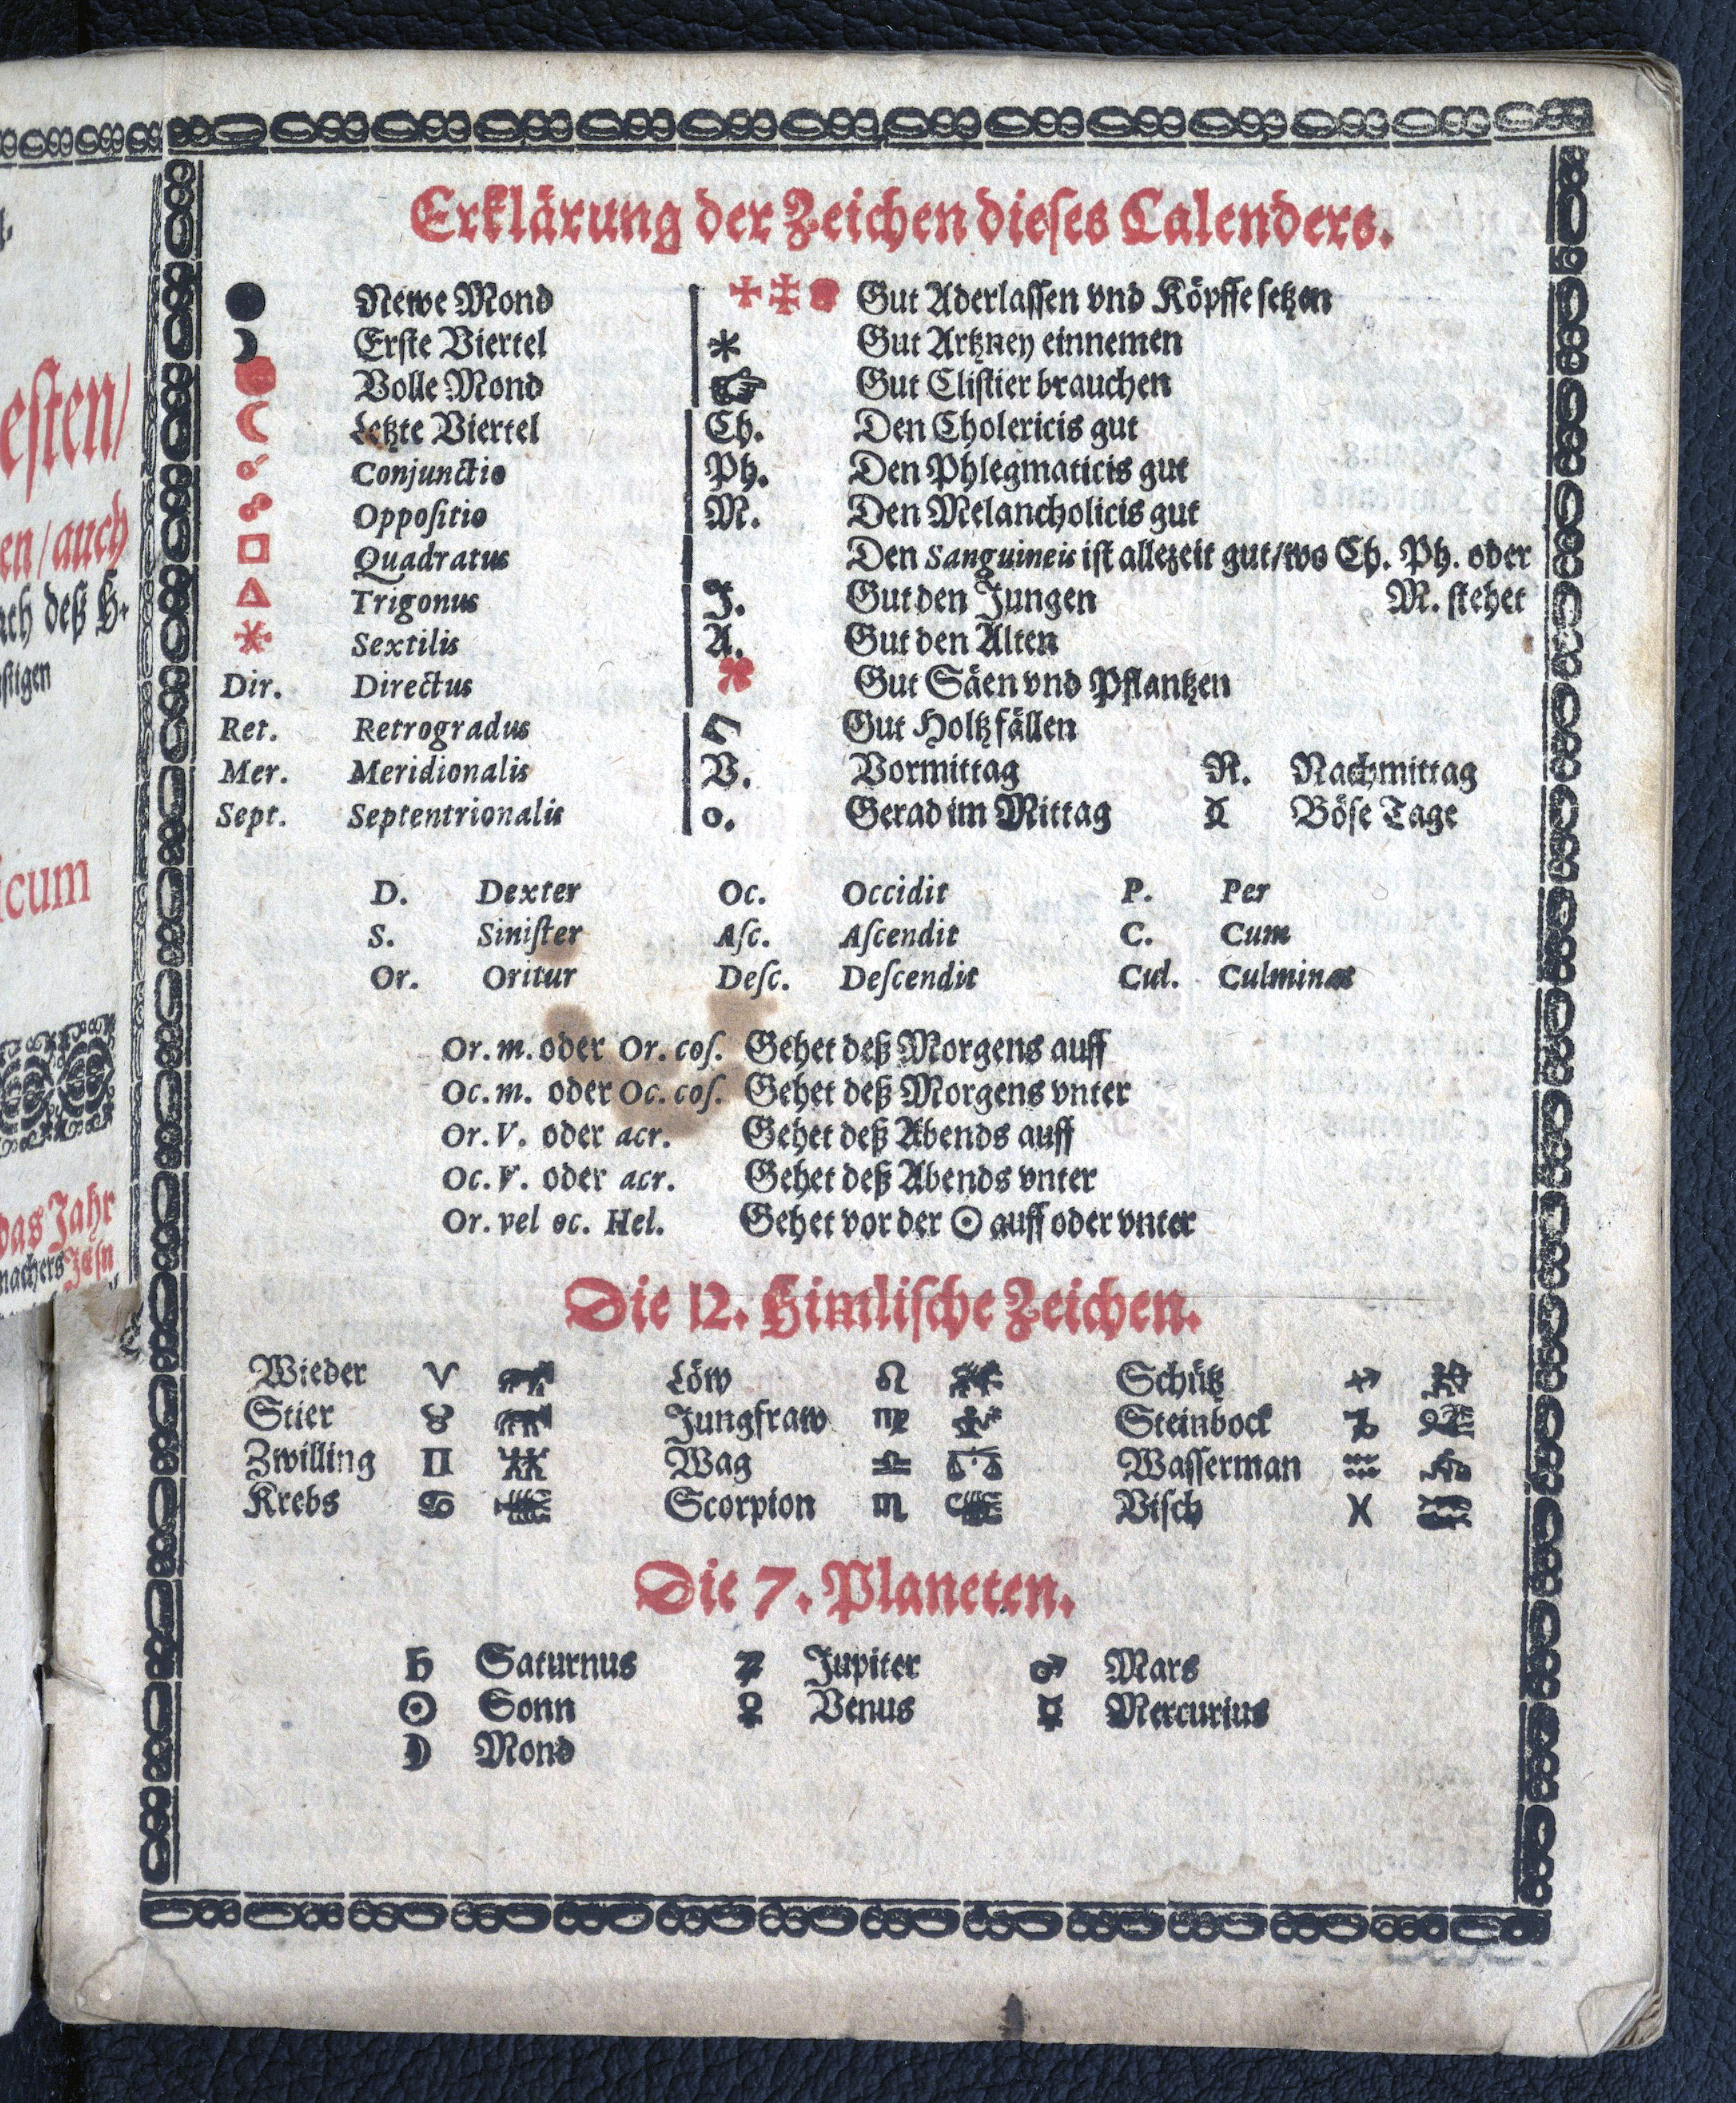 Erklärung der Zeichen dieses Calenders.
Newe Mond
Erste Viertel
Volle Mond
Letzte Viertel
☌ Conjunctio
☍ Oppositio
□ Quadratus
△ Trigonus
⚹ Sextilis
Dir. Directus
Ret. Retrogradus
Mer. Meridionalis
Sept. Septentrionalis
Gut Aderlassen vnd Köpffe setzen
Gut Artzney einnemen
Gut Clistier brauchen
Ch. Den Cholericis gut
Ph. Den Phlegmaticis gut
M. Den Melancholicis gut
Den Sanguineis ist allezeit gut/wo Ch. Ph. oder
M. stehet
J. Gut den Jungen
A. Gut den Alten
Gut Säen vnd Pflantzen
Gut Holtz fällen
V. Vormittag N. Nachmittag
o. Gerad im Mittag Böse Tage
D. Dexter Oc. Occidit P. Per
S. Sinister Asc. Ascendit C. Cum
Or. Oritur Desc. Descendit Cul. Culminat
Or. m. oder Or. cos. Gehet deß Morgens auff
Oc. m. oder Oc. cos. Gehet deß Morgens vnter
Or. V. oder acr. Gehet deß Abends auff
Oc. V. oder acr. Gehet deß Abends vnter
Or. vel oc. Hel. Gehet vor der ☉ auff oder vnter
Die 12. Himlische Zeichen.
Wieder ♈ Löw ♌ Schütz ♐
Stier ♉ Jungfraw ♍ Steinbock ♑
Zwilling ♊ Wag ♎ Wasserman ♒
Krebs ♋ Scorpion ♏ Visch ♓
Die 7. Planeten.
♄ Saturnus ♃ Jupiter ♂ Mars
☉ Sonn ♀ Venus ☿ Mercurius
☽ Mond
esten/
en/auch
ach deß H.
icum
das Jahr